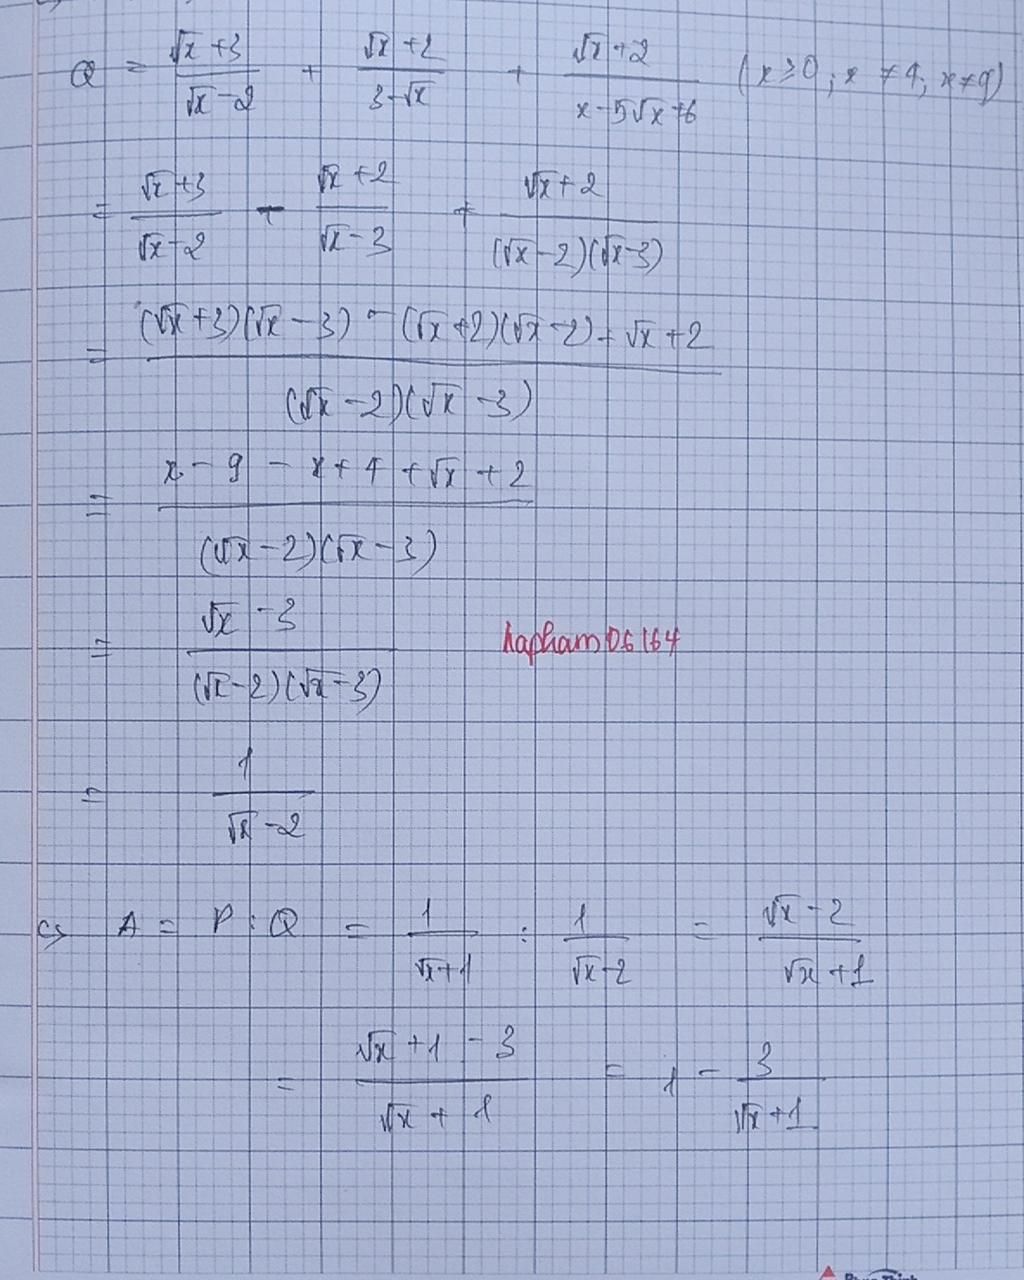 Q = \frac{\sqrt{x}+3}{\sqrt{x}-2} + \frac{\sqrt{x}+2}{3-\sqrt{x}} + \frac{\sqrt{x}+2}{x-5\sqrt{x}+6} (x ≥ 0; x ≠ 4; x ≠ 9)
= \frac{\sqrt{x}+3}{\sqrt{x}-2} - \frac{\sqrt{x}+2}{\sqrt{x}-3} + \frac{\sqrt{x}+2}{(\sqrt{x}-2)(\sqrt{x}-3)}
= \frac{(\sqrt{x}+3)(\sqrt{x}-3) - (\sqrt{x}+2)(\sqrt{x}-2) + \sqrt{x}+2}{(\sqrt{x}-2)(\sqrt{x}-3)}
= \frac{x-9-x+4+\sqrt{x}+2}{(\sqrt{x}-2)(\sqrt{x}-3)}
= \frac{\sqrt{x}-3}{(\sqrt{x}-2)(\sqrt{x}-3)}
hapham06164
= \frac{1}{\sqrt{x}-2}
c, A = P : Q = \frac{1}{\sqrt{x}+1} : \frac{1}{\sqrt{x}-2} = \frac{\sqrt{x}-2}{\sqrt{x}+1}
= \frac{\sqrt{x}+1-3}{\sqrt{x}+1} = 1 - \frac{3}{\sqrt{x}+1}